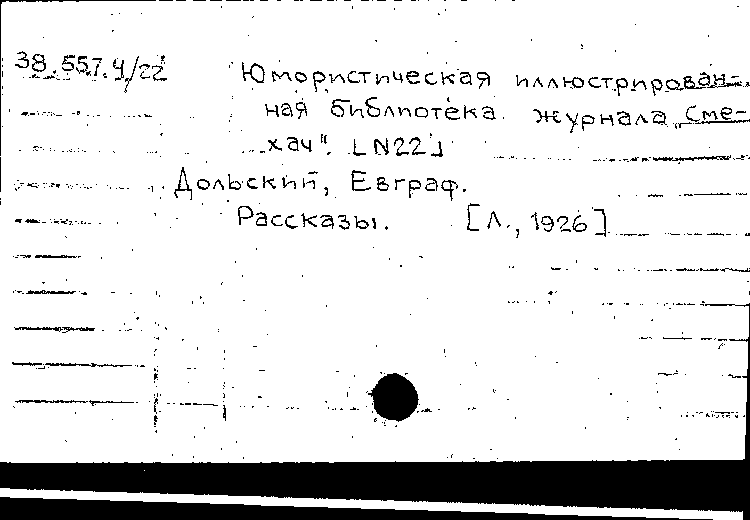 38.557.Ч/22 Юмористическая иллюстрирован-
ная библиотека журнала „Сме-
хач". [N22]
Дольский, Евграф.
Рассказы. [Л., 1926]